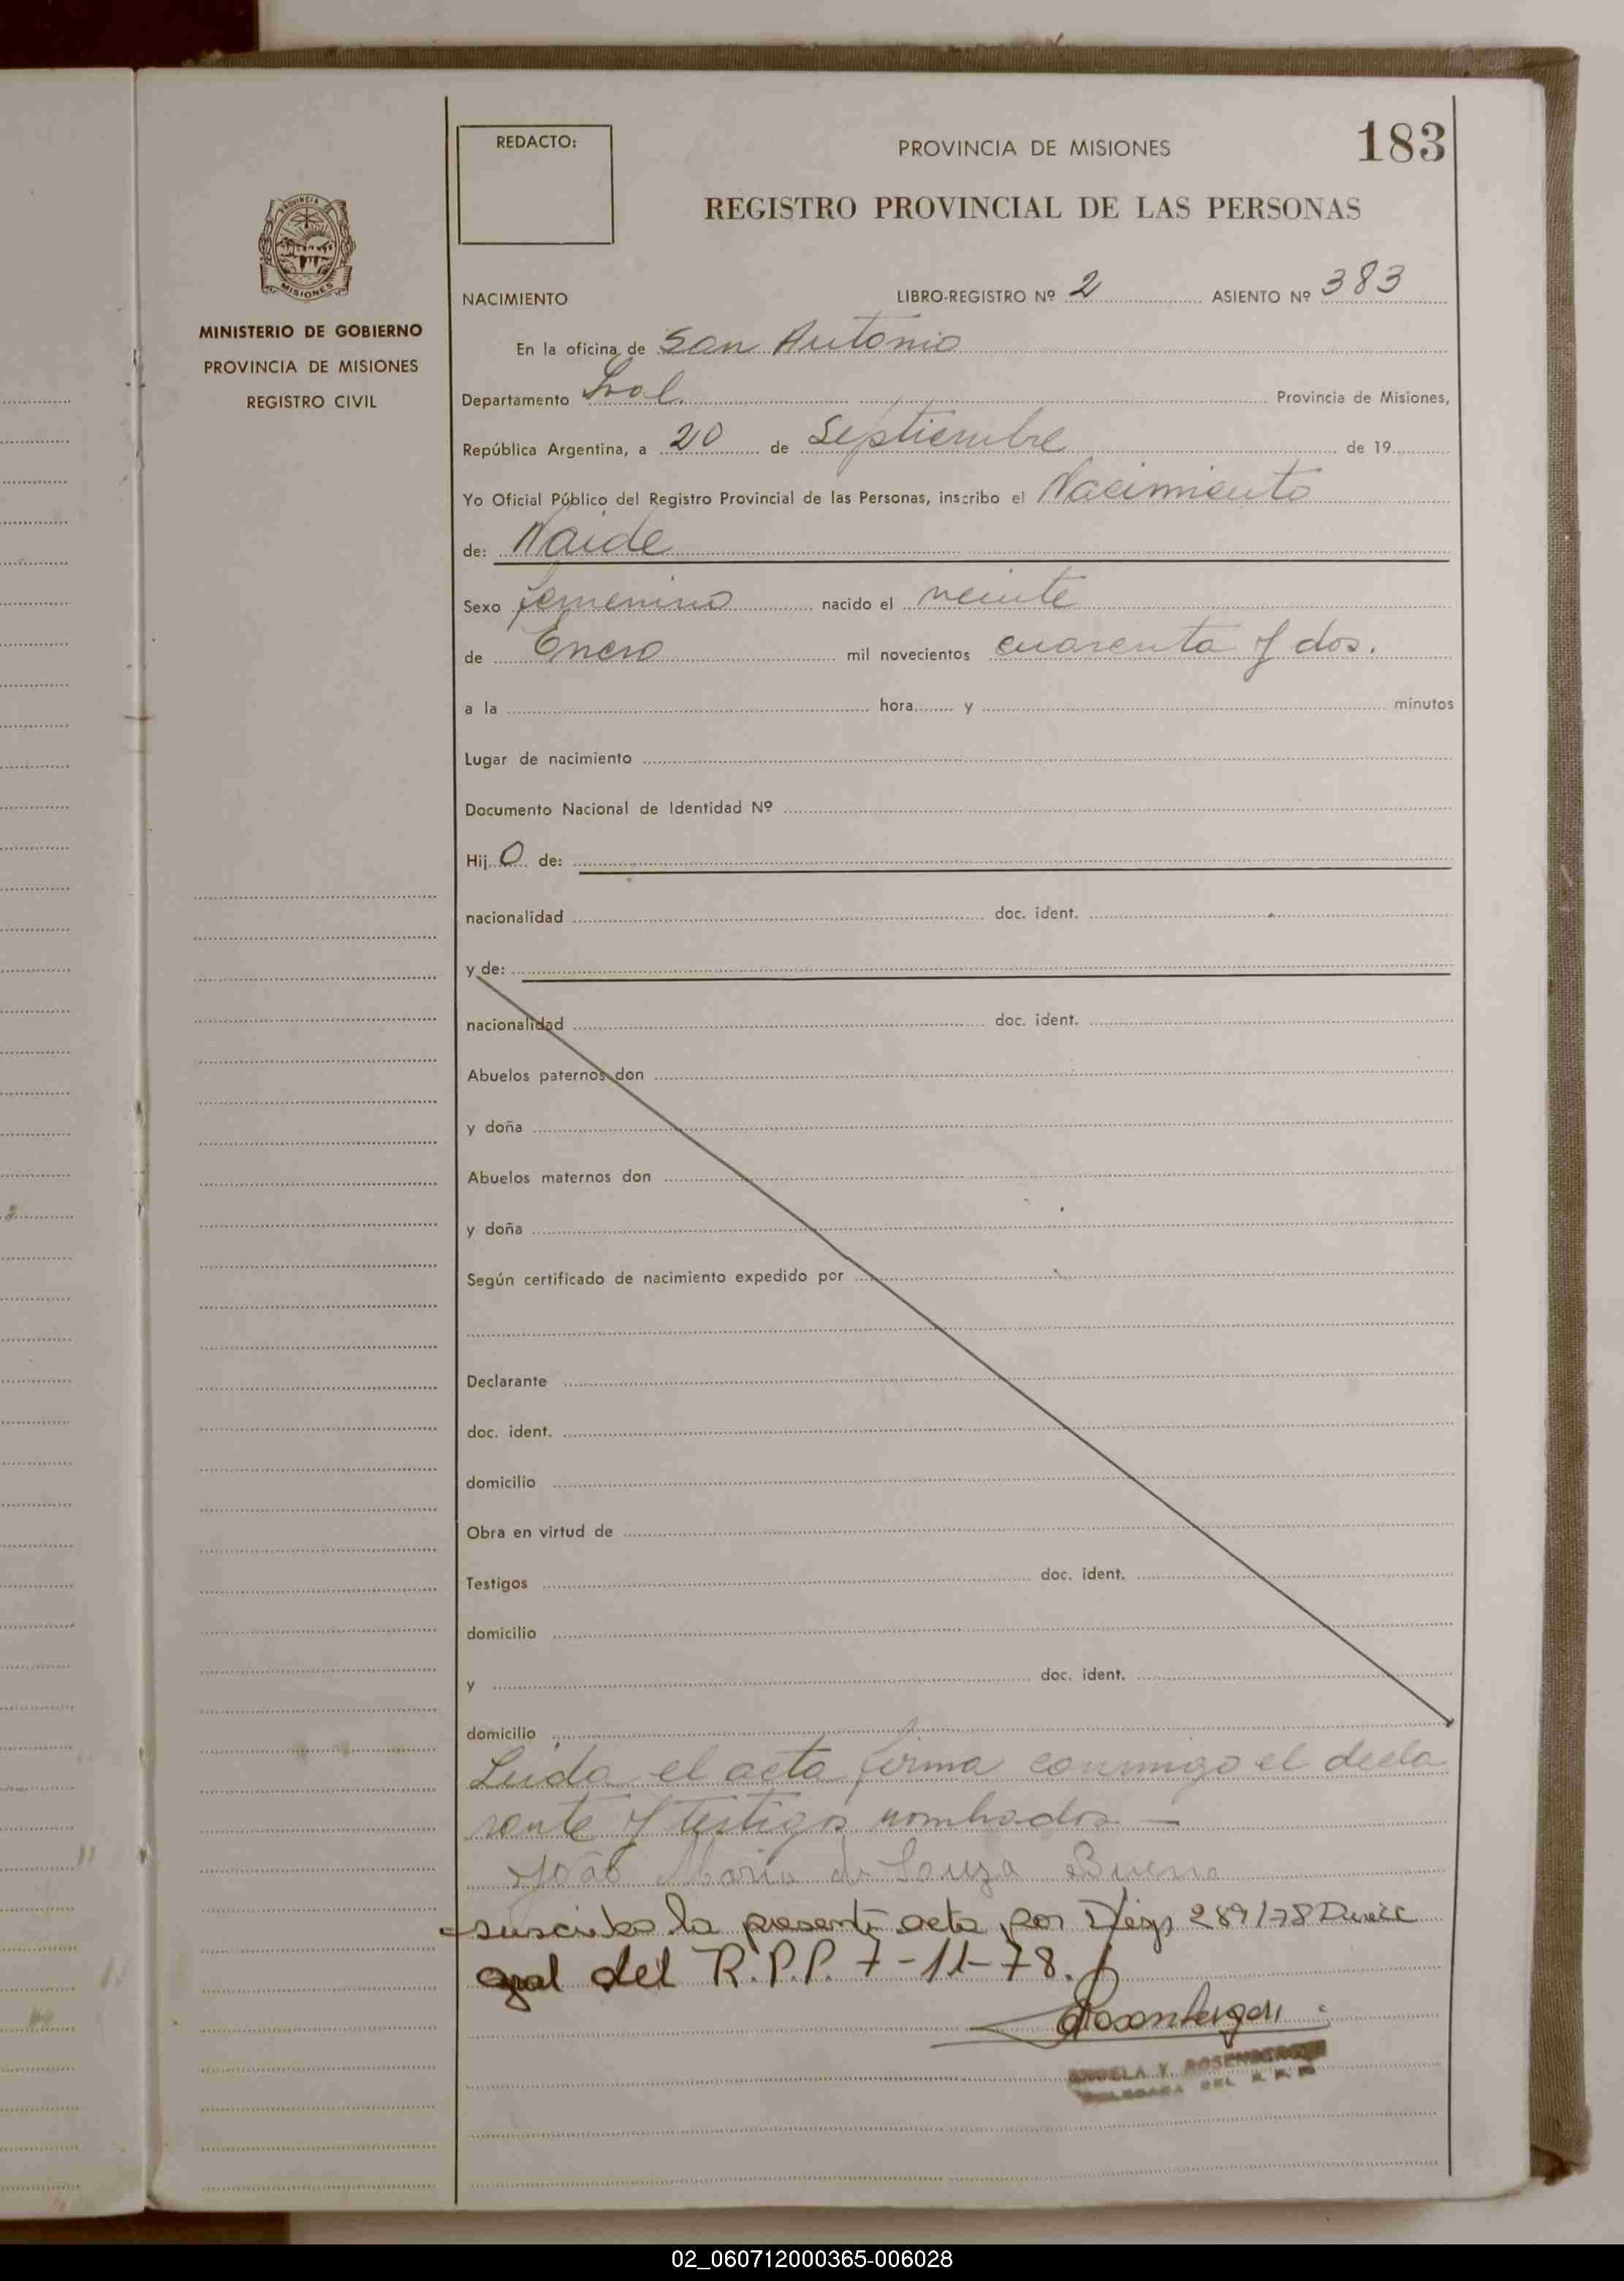 183
REDACTO:
PROVINCIA DE MISIONES
REGISTRO PROVINCIAL DE LAS PERSONAS
PROVINCIA DE
MISIONES
MINISTERIO DE GOBIERNO
PROVINCIA DE MISIONES
REGISTRO CIVIL
NACIMIENTO LIBRO-REGISTRO Nº 2 ASIENTO Nº 383
En la oficina de San Antonio
Departamento Provincia de Misiones,
República Argentina, a 20 de Septiembre de 19
Yo Oficial Público del Registro Provincial de las Personas, inscribo el Nacimiento
de: Naide
Sexo femenino nacido el veinte
de Enero mil novecientos cuarenta y dos.
a la hora y minutos
Lugar de nacimiento
Documento Nacional de Identidad Nº
Hij O de:
nacionalidad doc. ident.
y de:
nacionalidad doc. ident.
Abuelos paternos don
y doña
Abuelos maternos don
y doña
Según certificado de nacimiento expedido por
Declarante
doc. ident.
domicilio
Obra en virtud de
Testigos doc. ident.
domicilio
y doc. ident.
domicilio
Leida el acta firma conmigo el decla
rante y testigos nombrados —
João Maria de Souza Bueno
suscribo la presente acta por 289/78
gral del R.P.P. 7-11-78.
Rosenberger
ANGELA V. ROSENBERGER
DELEGADA DEL R. P. P.
02_060712000365-006028